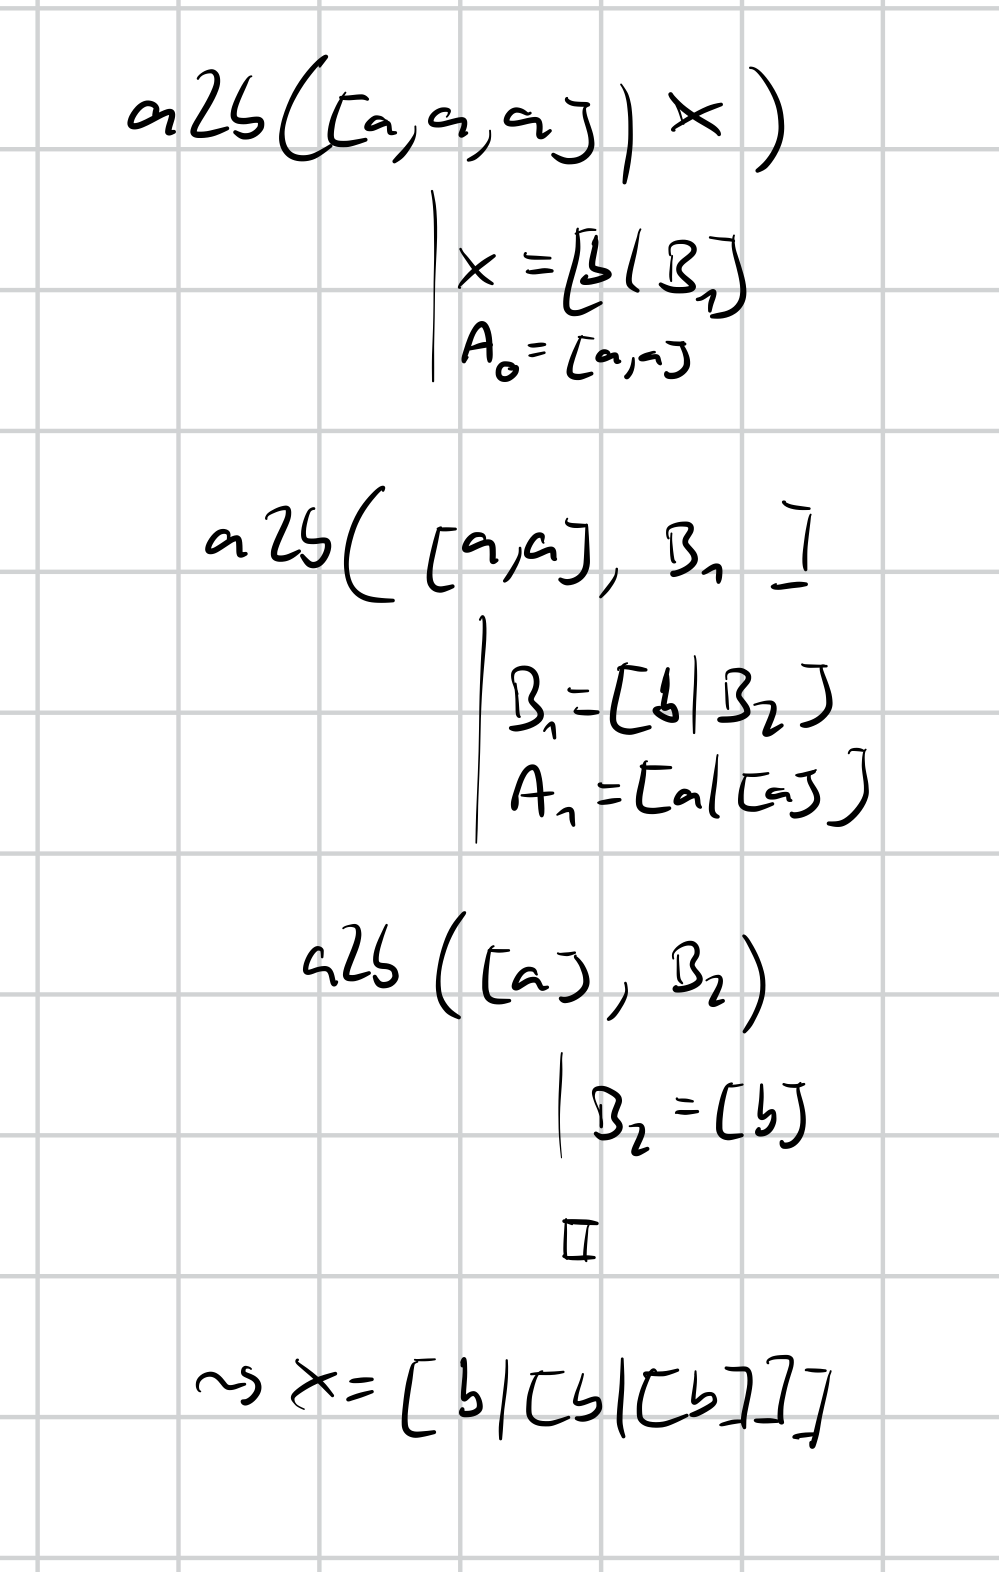 a2b([a,a,a] | x)
x = [b | B₁]
A₀ = [a,a]
a2b( [a,a], B₁ ]
B₁ = [b | B₂]
A₁ = [a | [a]]
a2b ([a], B₂)
B₂ = [b]
□
⇝ x = [b | [b | [b]]]